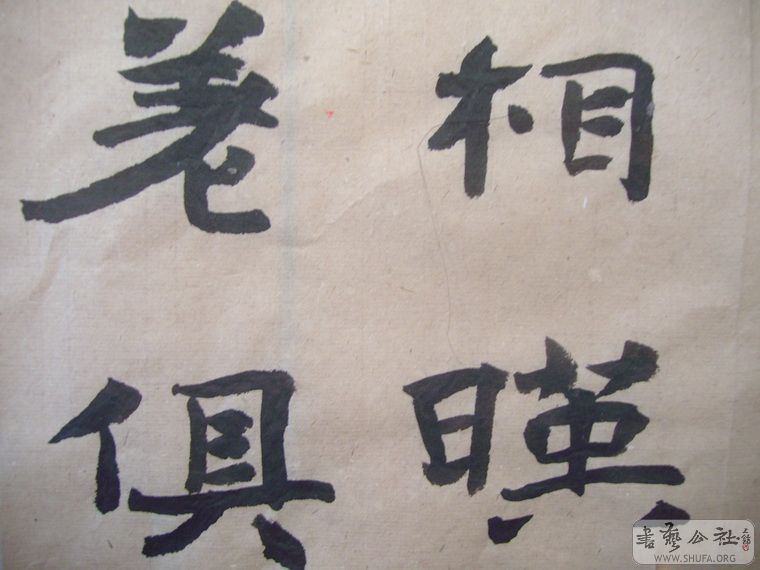 相暎
俱
書藝公社
WWW.SHUFA.ORG